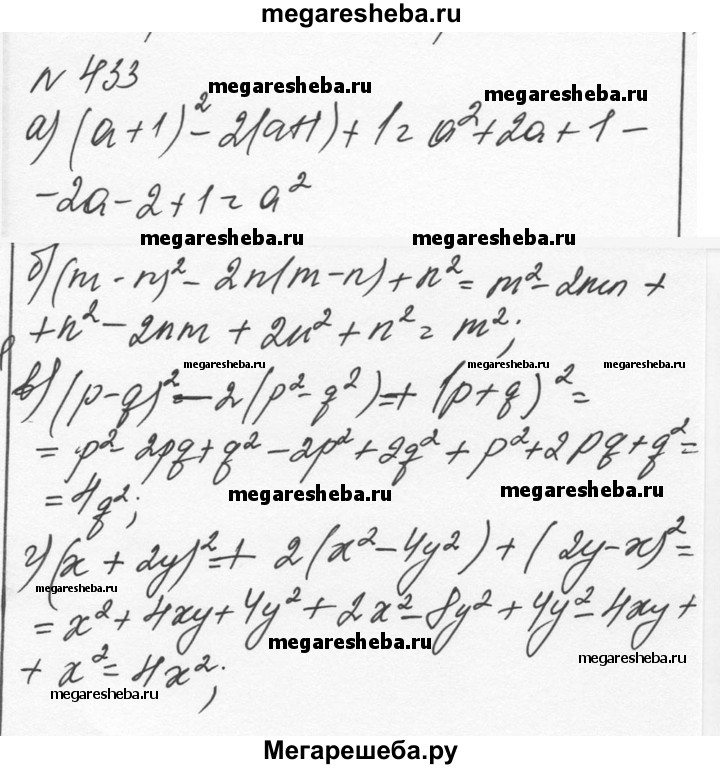 megaresheba.ru
N 433
megaresheba.ru megaresheba.ru
а) (a+1)²-2(a+1)+1= a²+2a+1-
-2a-2+1= a²
megaresheba.ru megaresheba.ru
б) (m-n)²-2n(m-n)+n²= m²-2mn+
+n²-2nm+2n²+n²= m²;
megaresheba.ru megaresheba.ru megaresheba.ru
в) (p-q)²-2(p²-q²)+(p+q)²=
=p²-2pq+q²-2p²+2q²+p²+2pq+q²=
=4q²;
megaresheba.ru megaresheba.ru
г) (x+2y)²+2(x²-4y²)+(2y-x)²=
megaresheba.ru
=x²+4xy+4y²+2x²-8y²+4y²-4xy+
megaresheba.ru
+x²=4x²;
megaresheba.ru
megaresheba.ru
Мегарешеба.ру